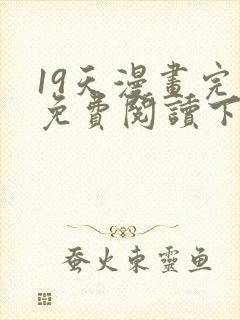 19天漫畫完
免費閱讀下
蚕火東靈鱼